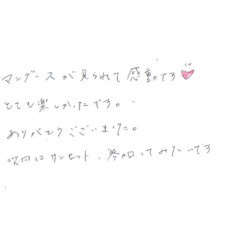 マングースが見られて感動です
とても楽しかったです。
ありがとうございました。
次回はサンセット、参加してみたいです